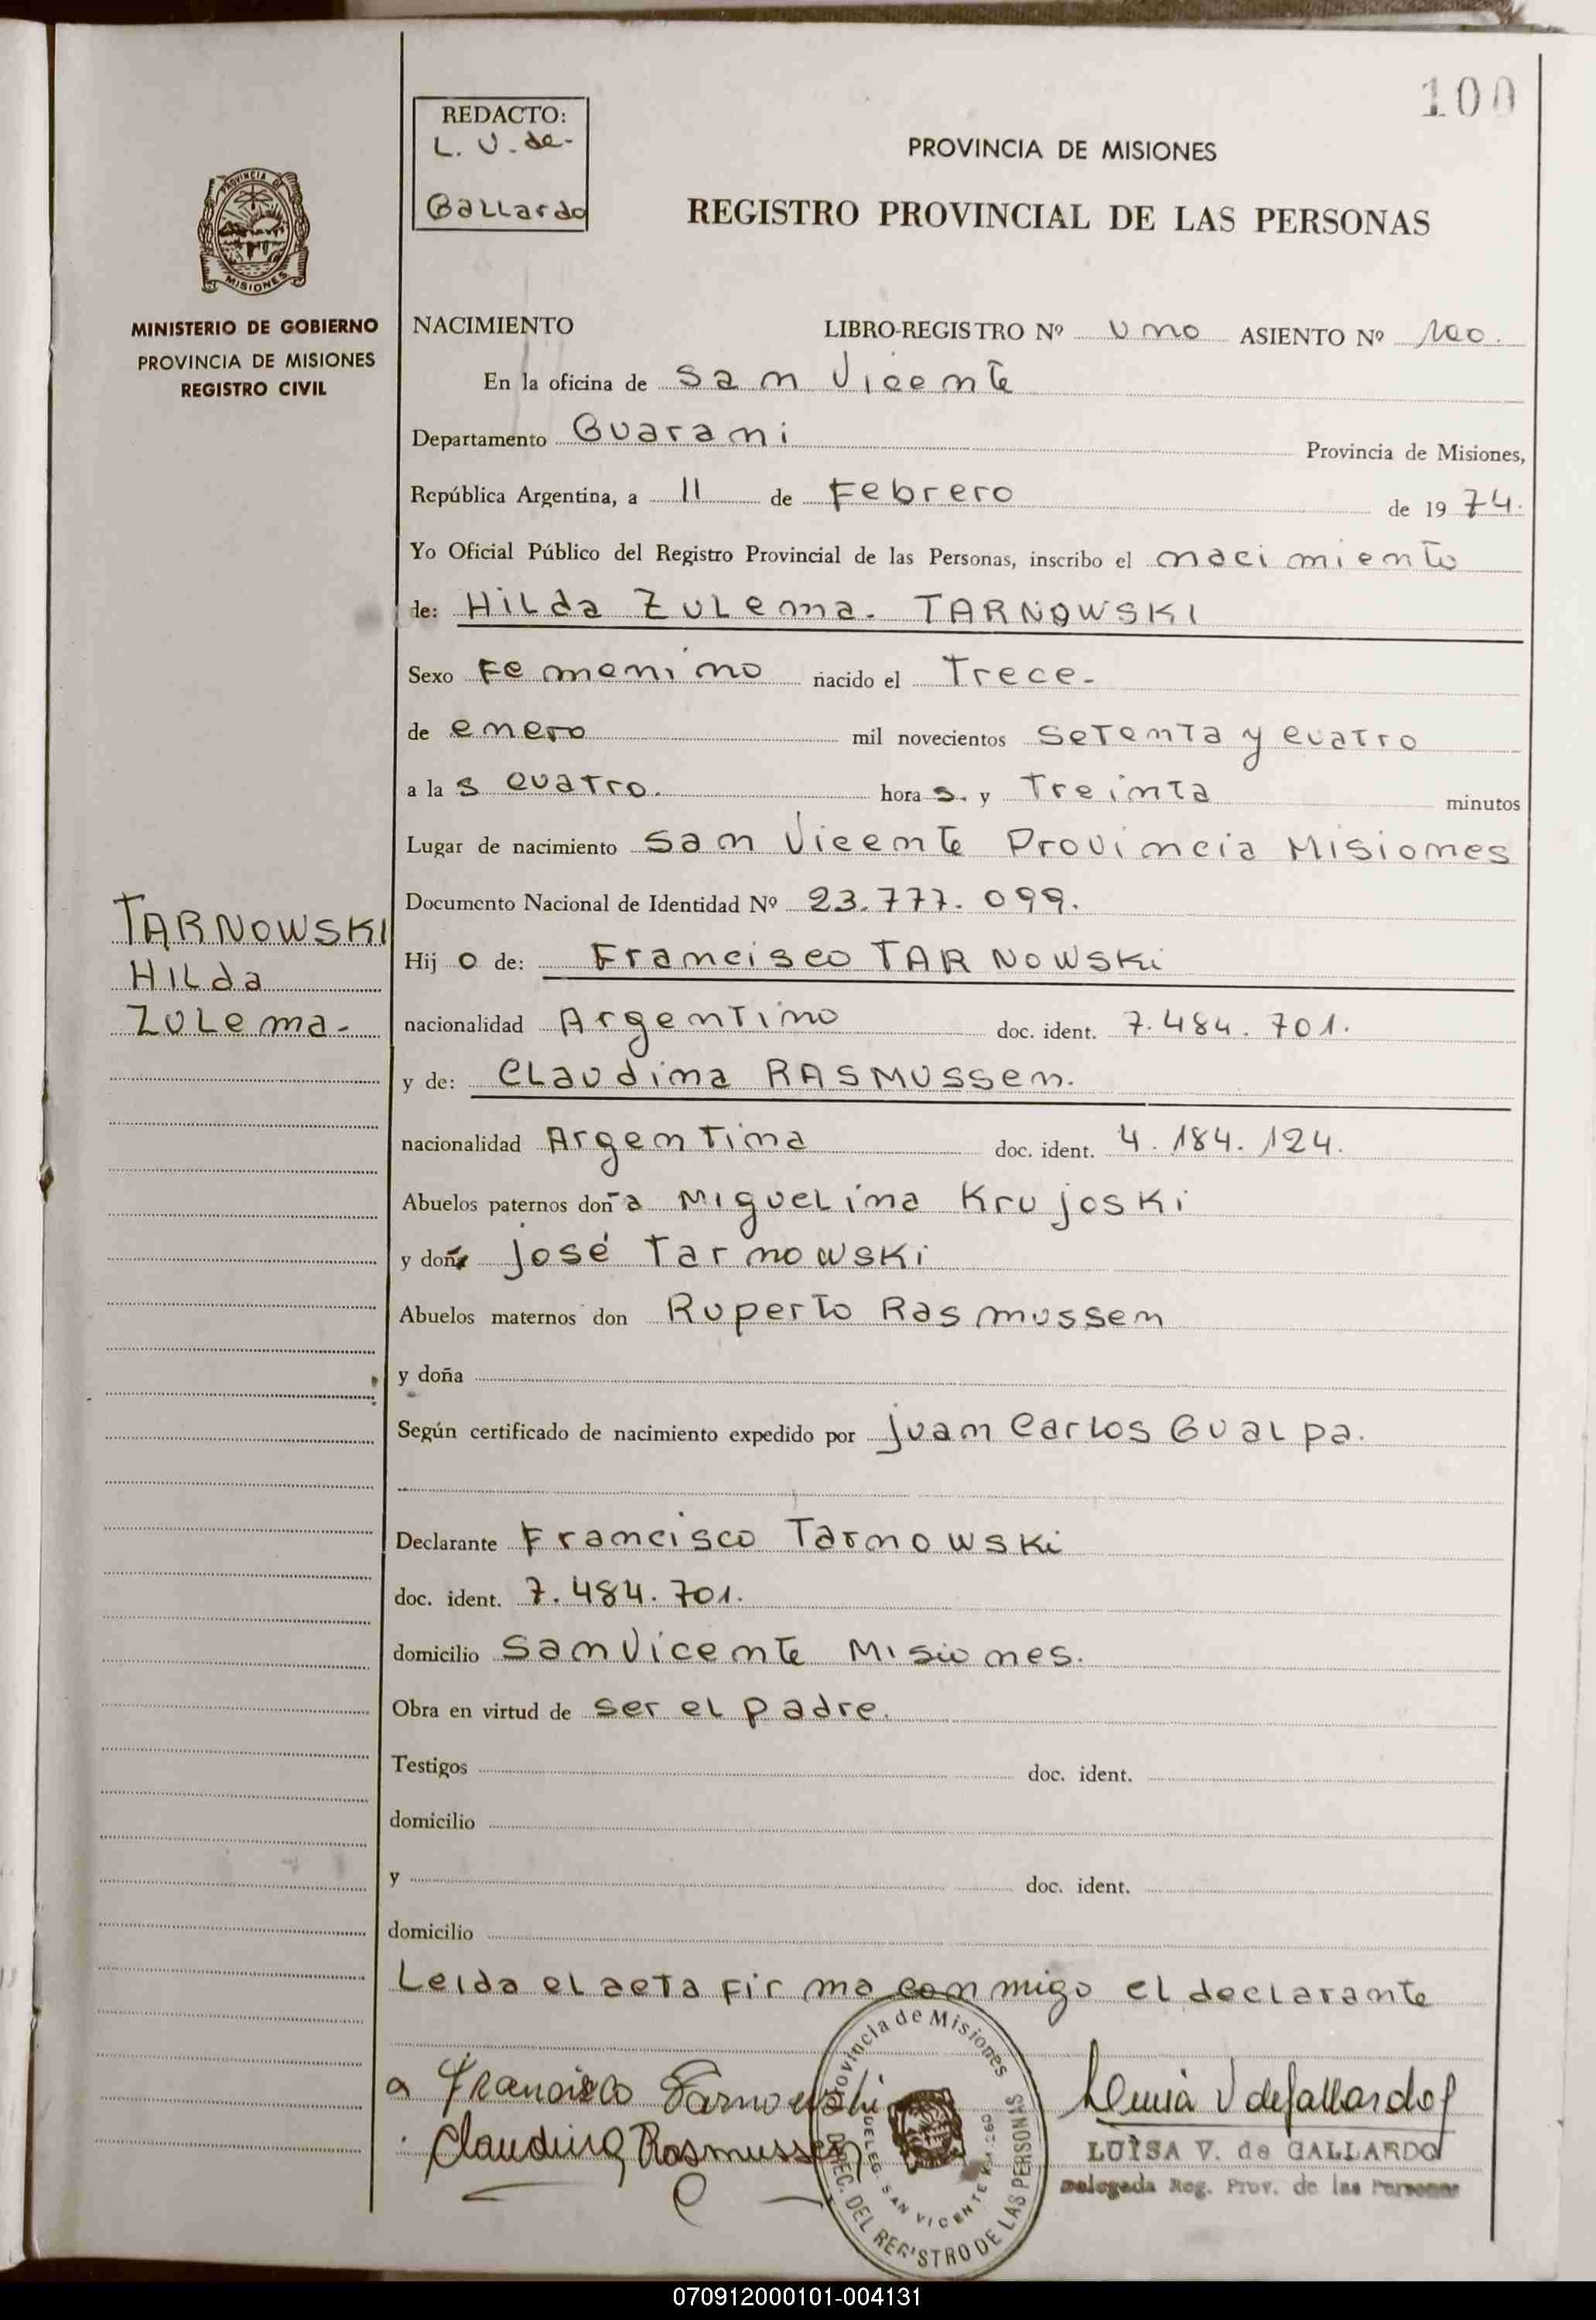 100
REDACTO:
L. V. de-
Gallardo
PROVINCIA DE MISIONES
REGISTRO PROVINCIAL DE LAS PERSONAS
PROVINCIA DE
MISIONES
MINISTERIO DE GOBIERNO
PROVINCIA DE MISIONES
REGISTRO CIVIL
NACIMIENTO LIBRO-REGISTRO Nº Uno ASIENTO Nº 100.
En la oficina de San Vicente
Departamento Guarani Provincia de Misiones,
República Argentina, a 11 de Febrero de 1974.
Yo Oficial Público del Registro Provincial de las Personas, inscribo el nacimiento
de: Hilda Zulema. TARNOWSKI
Sexo Femenino nacido el Trece-
de enero mil novecientos setenta y cuatro
a las cuatro. horas. y Treinta minutos
Lugar de nacimiento San Vicente Provincia Misiones
Documento Nacional de Identidad Nº 23.777.099.
TARNOWSKI
Hilda
Zulema-
Hijo de: Francisco TARNOWSKi
nacionalidad Argentino doc. ident. 7.484.701.
y de: Claudina RASMUSSen.
nacionalidad Argentina doc. ident. 4.184.124.
Abuelos paternos doña Miguelina Krujoski
y don José Tarnowski
Abuelos maternos don Ruperto Rasmussen
y doña
Según certificado de nacimiento expedido por Juan Carlos Gualpa.
Declarante Francisco Tarnowski
doc. ident. 7.484.701.
domicilio San Vicente Misiones.
Obra en virtud de ser el padre.
Testigos doc. ident.
domicilio
y doc. ident.
domicilio
Leida el acta firma conmigo el declarante
a Francisco Tarnowski
Claudina Rasmussen
Provincia de Misiones
DIREC. DEL REGISTRO DE LAS PERSONAS
DELEG. SAN VICENTE
Luisa V de Gallardo
LUISA V. de GALLARDO
Delegada Reg. Prov. de las Personas
070912000101-004131